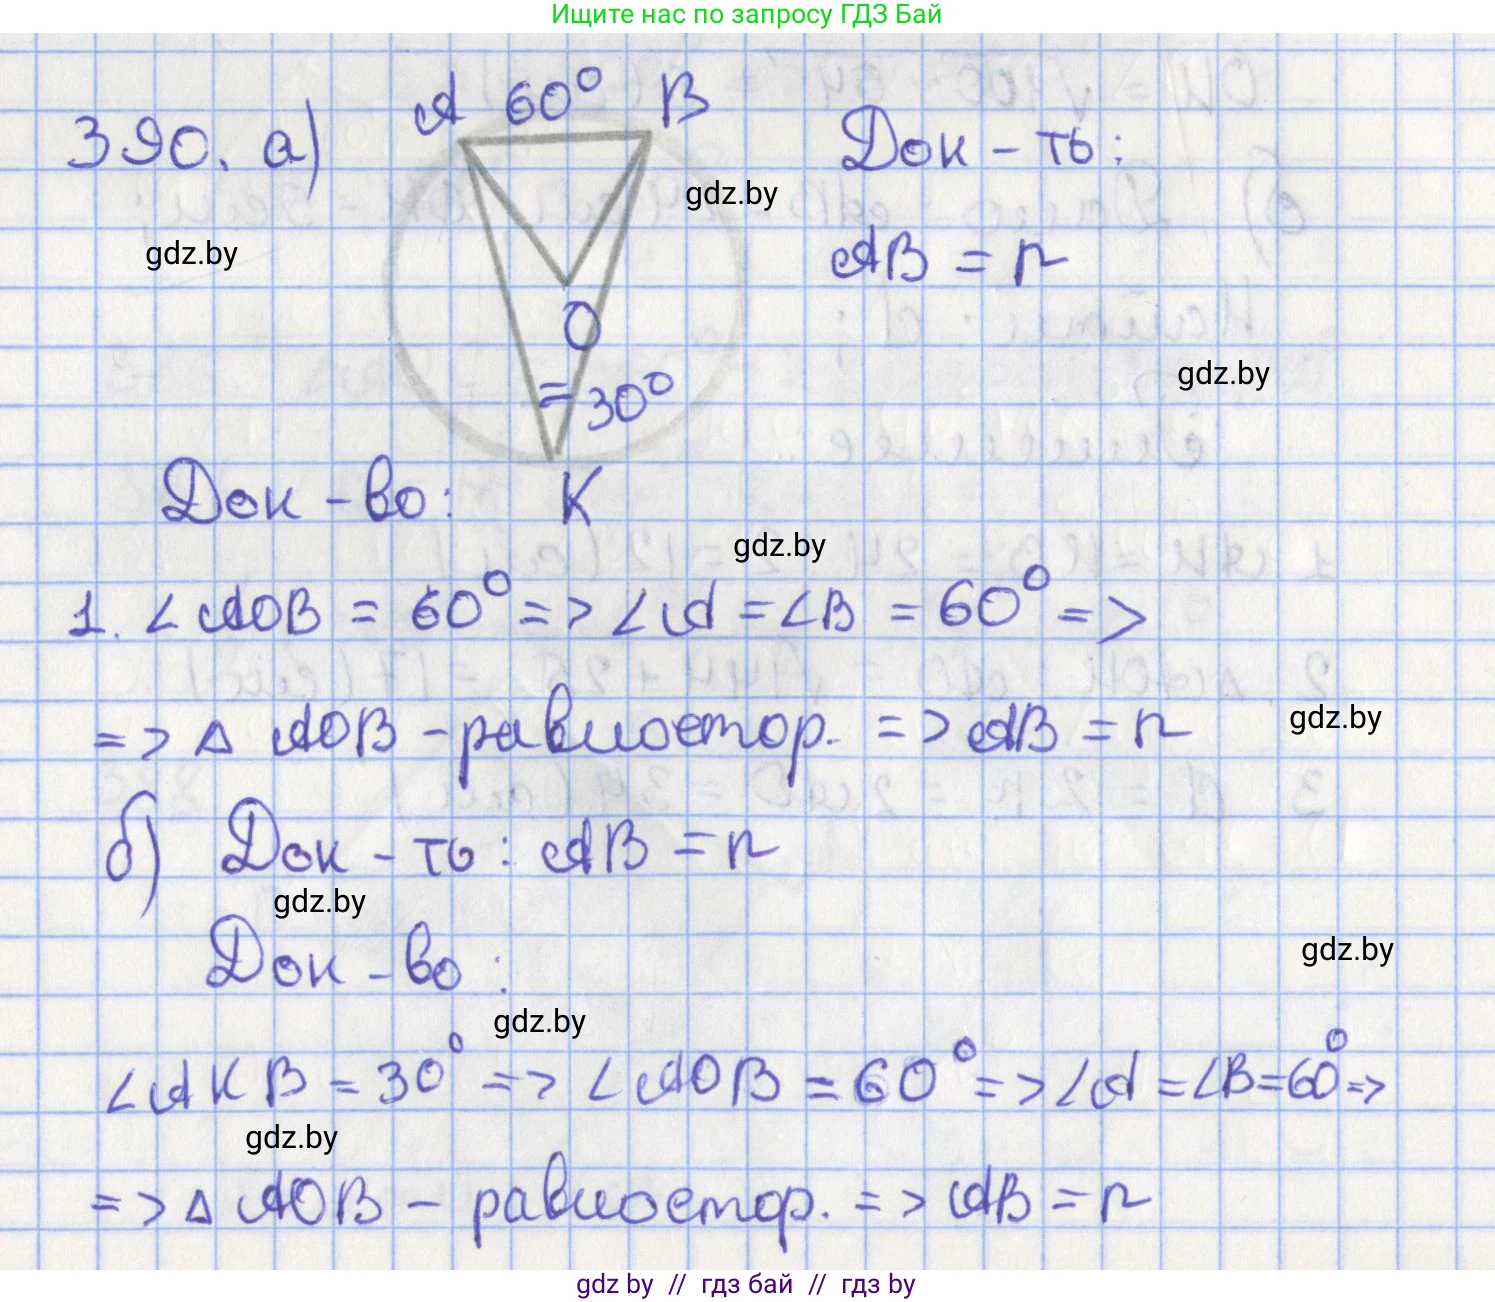 Ищите нас по запросу ГДЗ Бай
390. а)
A 60° B
Док-ть:
gdz.by
gdz.by
AB = r
O
gdz.by
= 30°
Док-во:
K
gdz.by
1. ∠AOB = 60° => ∠A = ∠B = 60° =>
=> △ AOB - равностор. => AB = r
gdz.by
б) Док-ть: AB = r
gdz.by
Док-во:
gdz.by
gdz.by
∠AKB = 30° => ∠AOB = 60° => ∠A = ∠B = 60° =>
gdz.by
=> △ AOB - равностор. => AB = r
gdz.by // гдз бай // гдз by